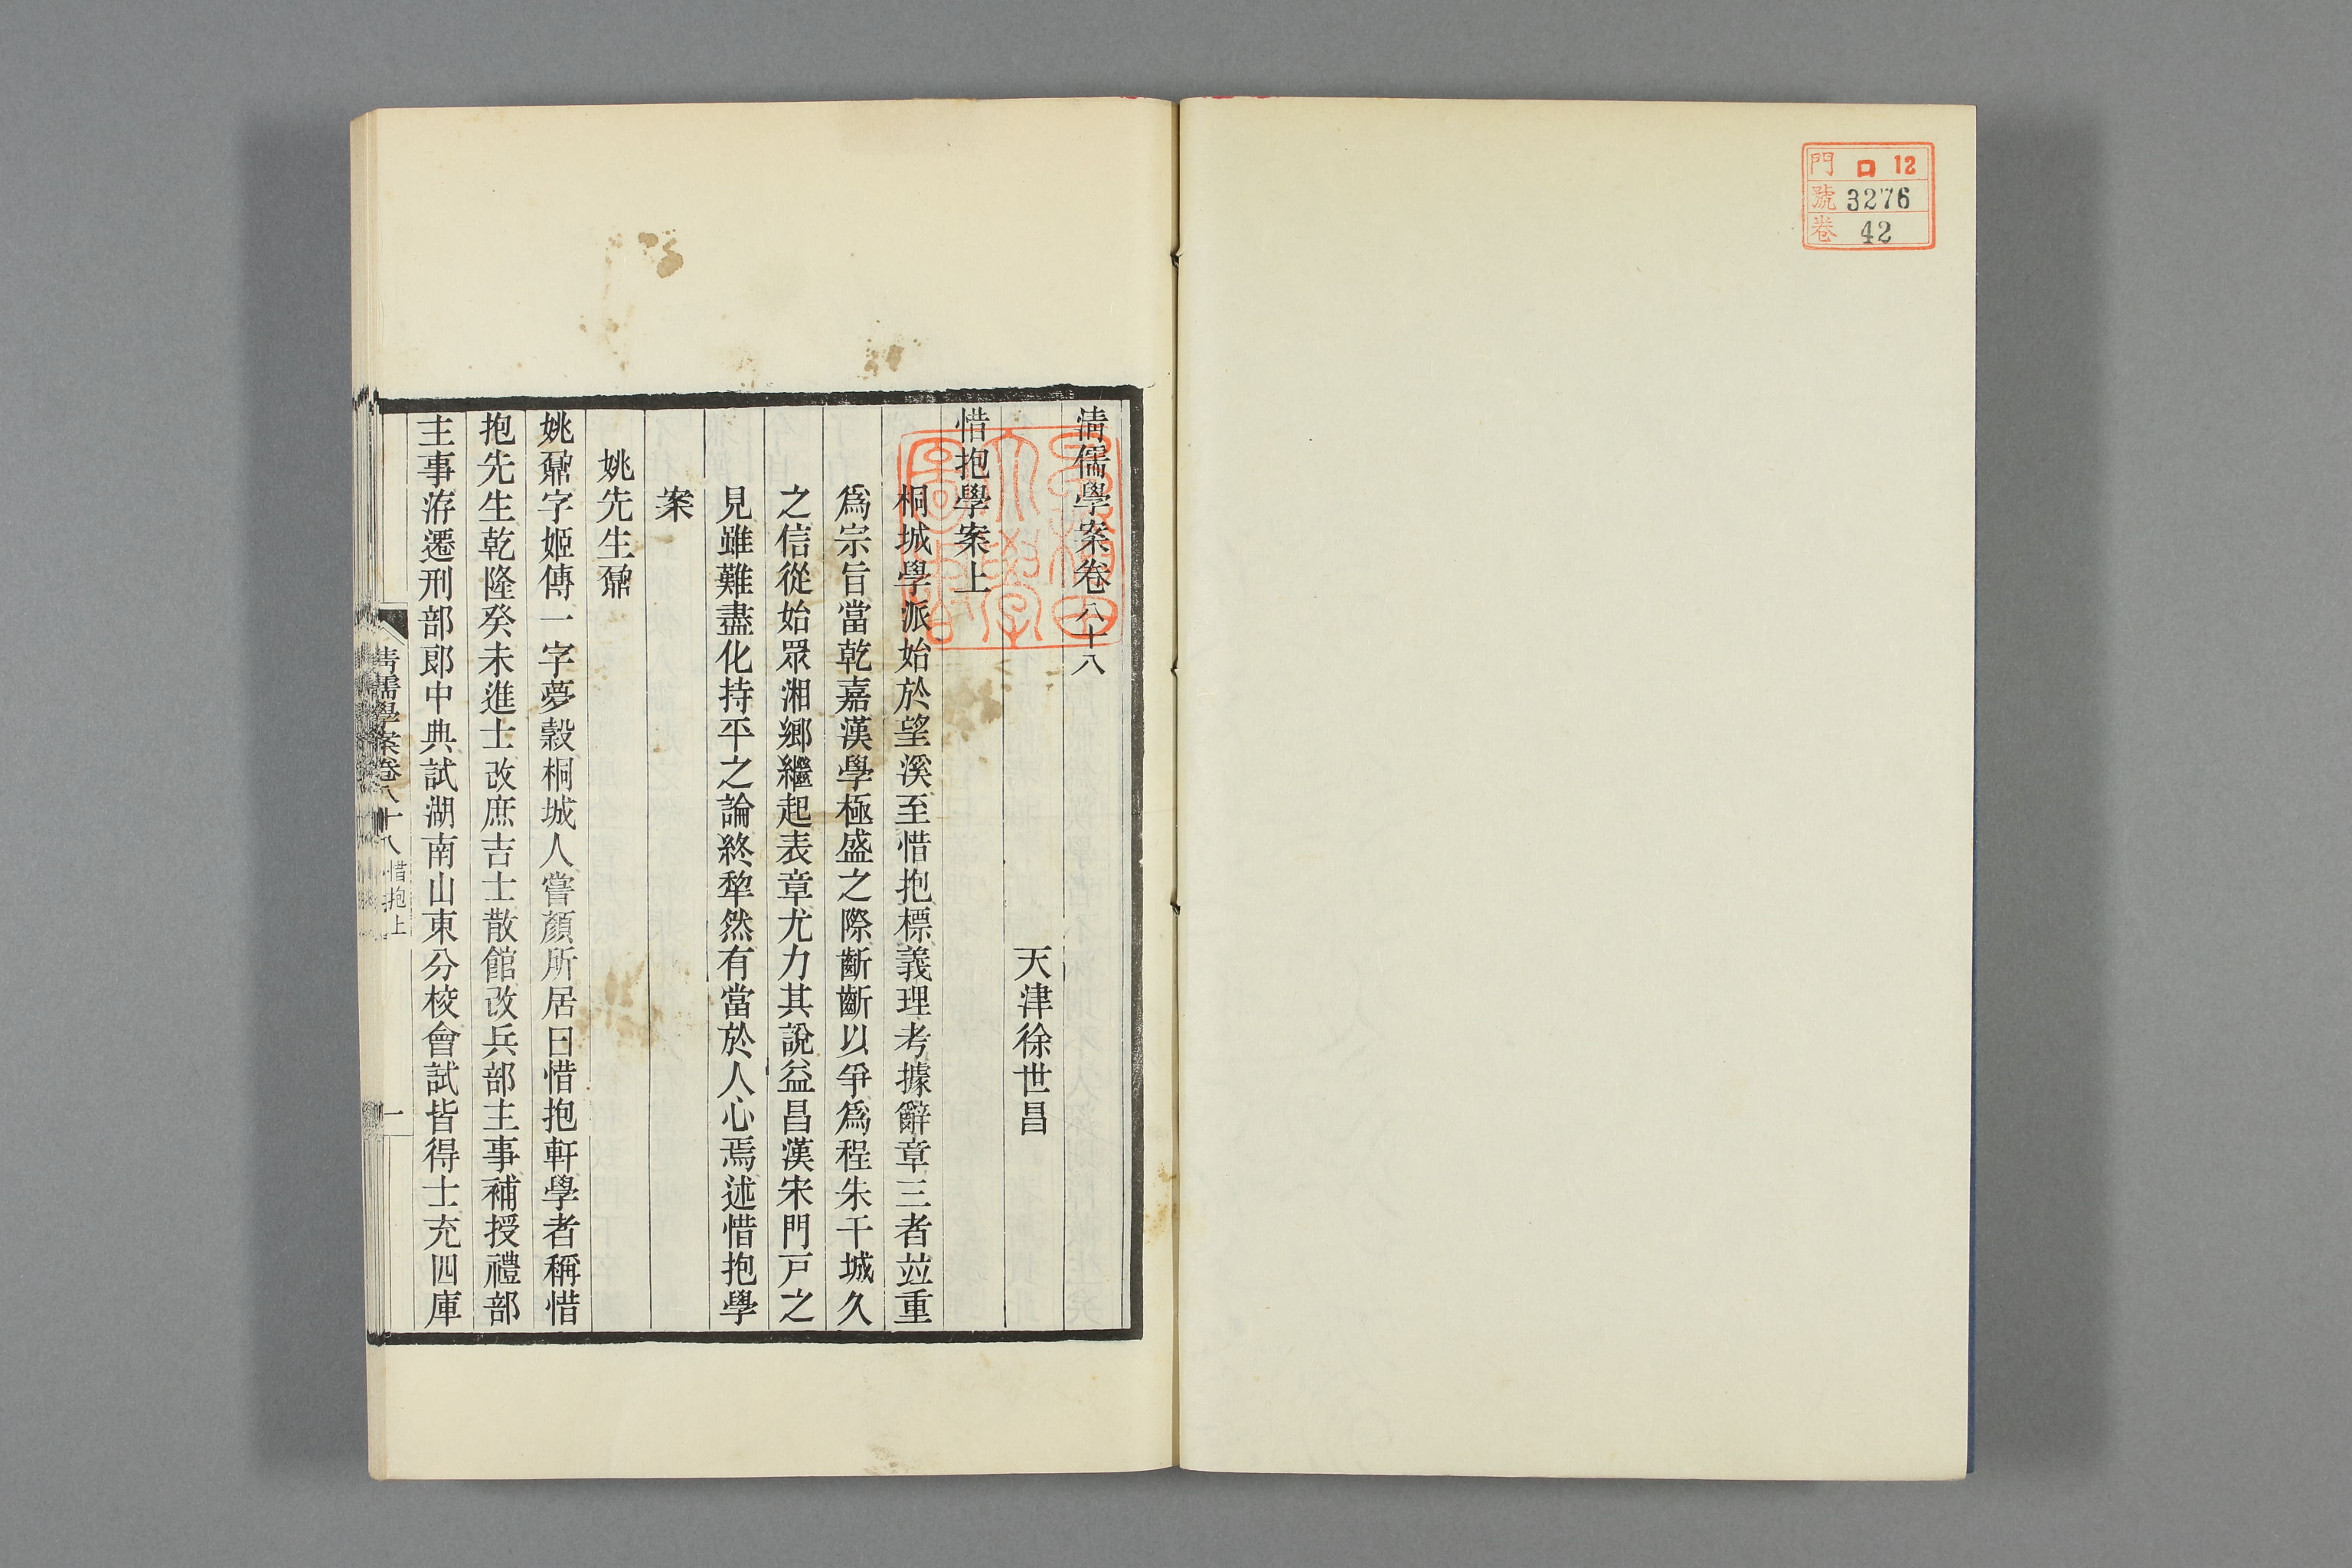 門 ロ 12
號 3276
卷 42
清儒學案卷八十八
天津徐世昌
惜抱學案上
桐城學派始於望溪至惜抱標義理考據辭章三者竝重
爲宗旨當乾嘉漢學極盛之際齗齗以爭爲程朱干城久
之信從始眾湘鄉繼起表章尤力其說益昌漢宋門戸之
見雖難盡化持平之論終犂然有當於人心焉述惜抱學
案
姚先生鼐
姚鼐字姬傳一字夢穀桐城人嘗顏所居曰惜抱軒學者稱惜
抱先生乾隆癸未進士改庶吉士散館改兵部主事補授禮部
主事洊遷刑部郎中典試湖南山東分校會試皆得士充四庫
清儒學案卷八十八 惜抱上
一